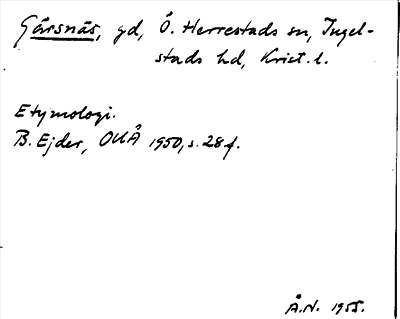 Gärsnäs, gd, Ö. Herrestads sn, Ingel-
stads hd, Krist. l.
Etymologi.
B. Ejder, OUÅ 1950, s. 28 f.
Å.N. 1955.